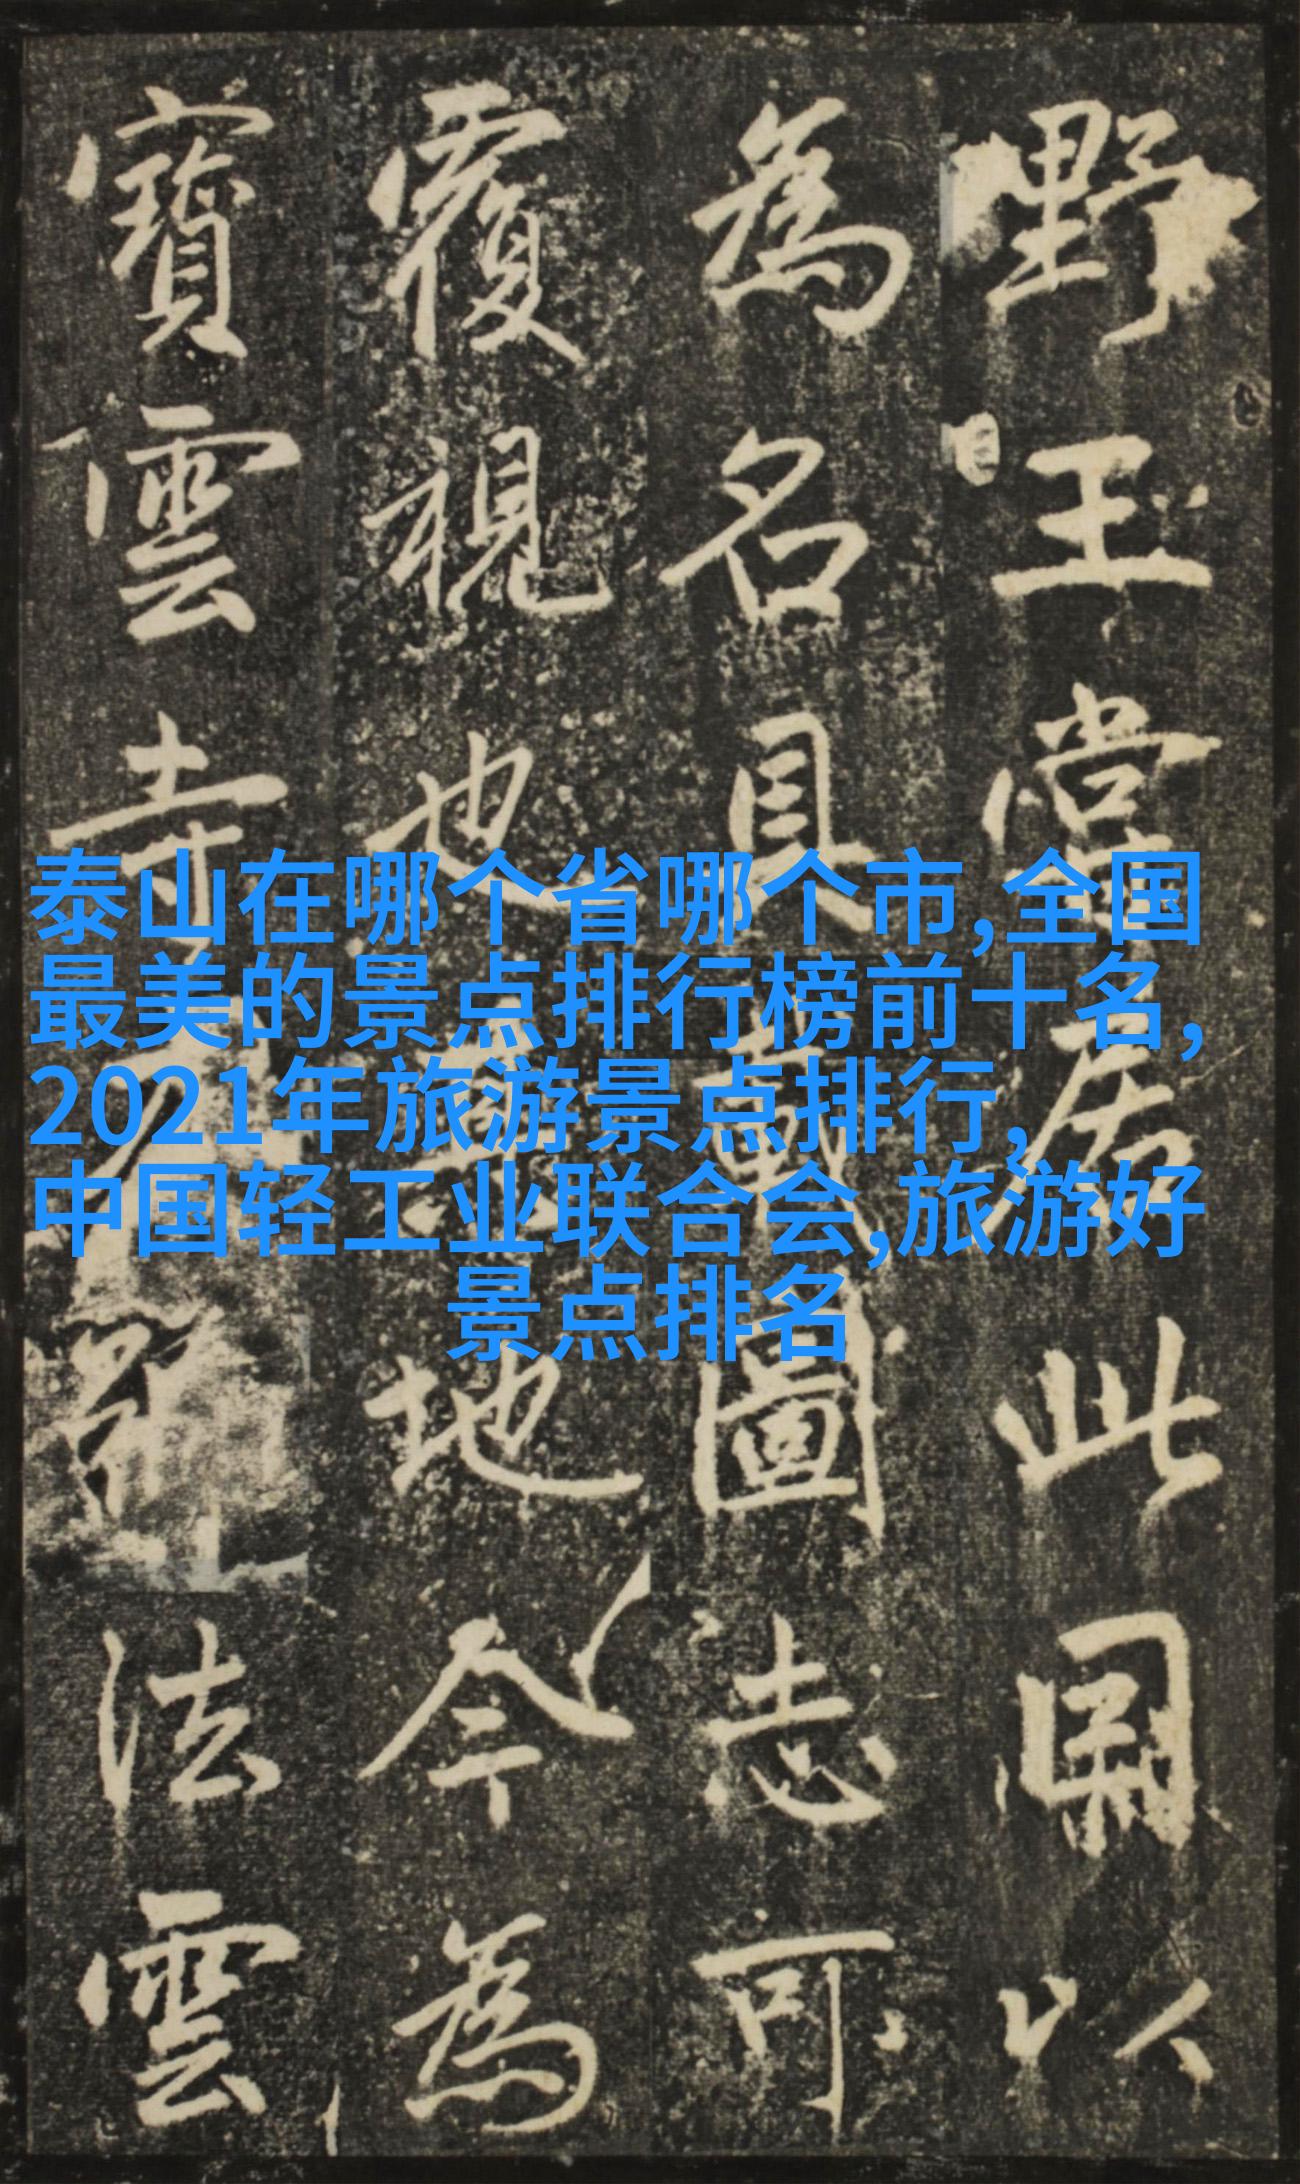 野王嘗居此以
為名具載圖志可
覆視也其地今為
寶雲寺法雲
泰山在哪个省哪个市,全国
最美的景点排行榜前十名,
2021年旅游景点排行,
中国轻工业联合会,旅游好
景点排名